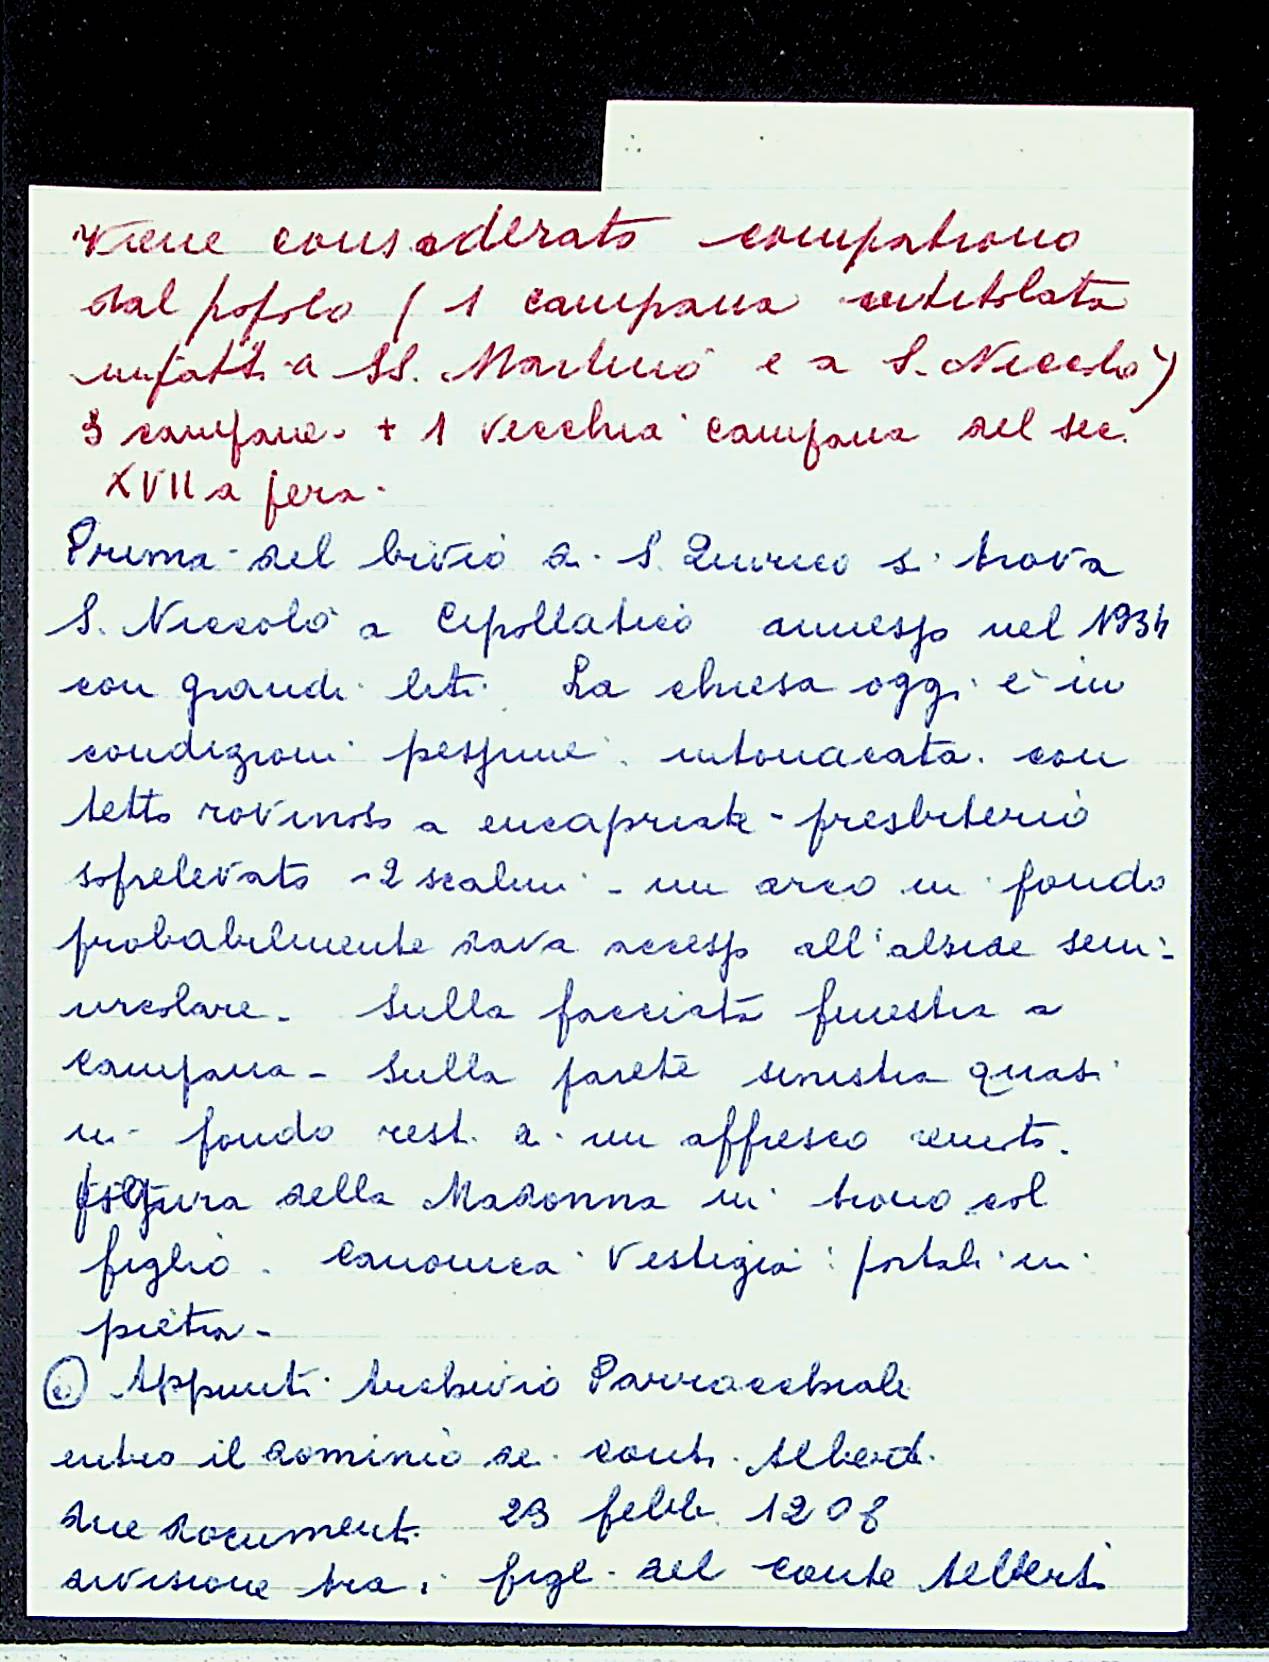 Viene considerato compatrono
dal popolo (1 campana intitolata
infatti a SS. Martino e a S. Niccolò)
3 campane. + 1 vecchia campana del sec.
XVII a pera.
Prima del bivio di S. Quirico si trova
S. Niccolò a Cipollatico annesso nel 1934
con grandi liti. La chiesa oggi è in
condizioni pessime intonacata con
tetto rovinoso a incapriate - presbiterio
sopraelevato - 2 scalini - un arco in fondo
probabilmente dava accesso all'abside semi-
circolare. Sulla facciata finestra a
campana - Sulla parete sinistra quasi
in fondo resti di un affresco
figura della Madonna in trono col
figlio. Canonica vestigia: portali in
pietra -
Appunti Archivio Parrocchiale
entro il dominio dei conti Alberti
due documenti 23 febb. 1208
divisione tra i figli del conte Alberti